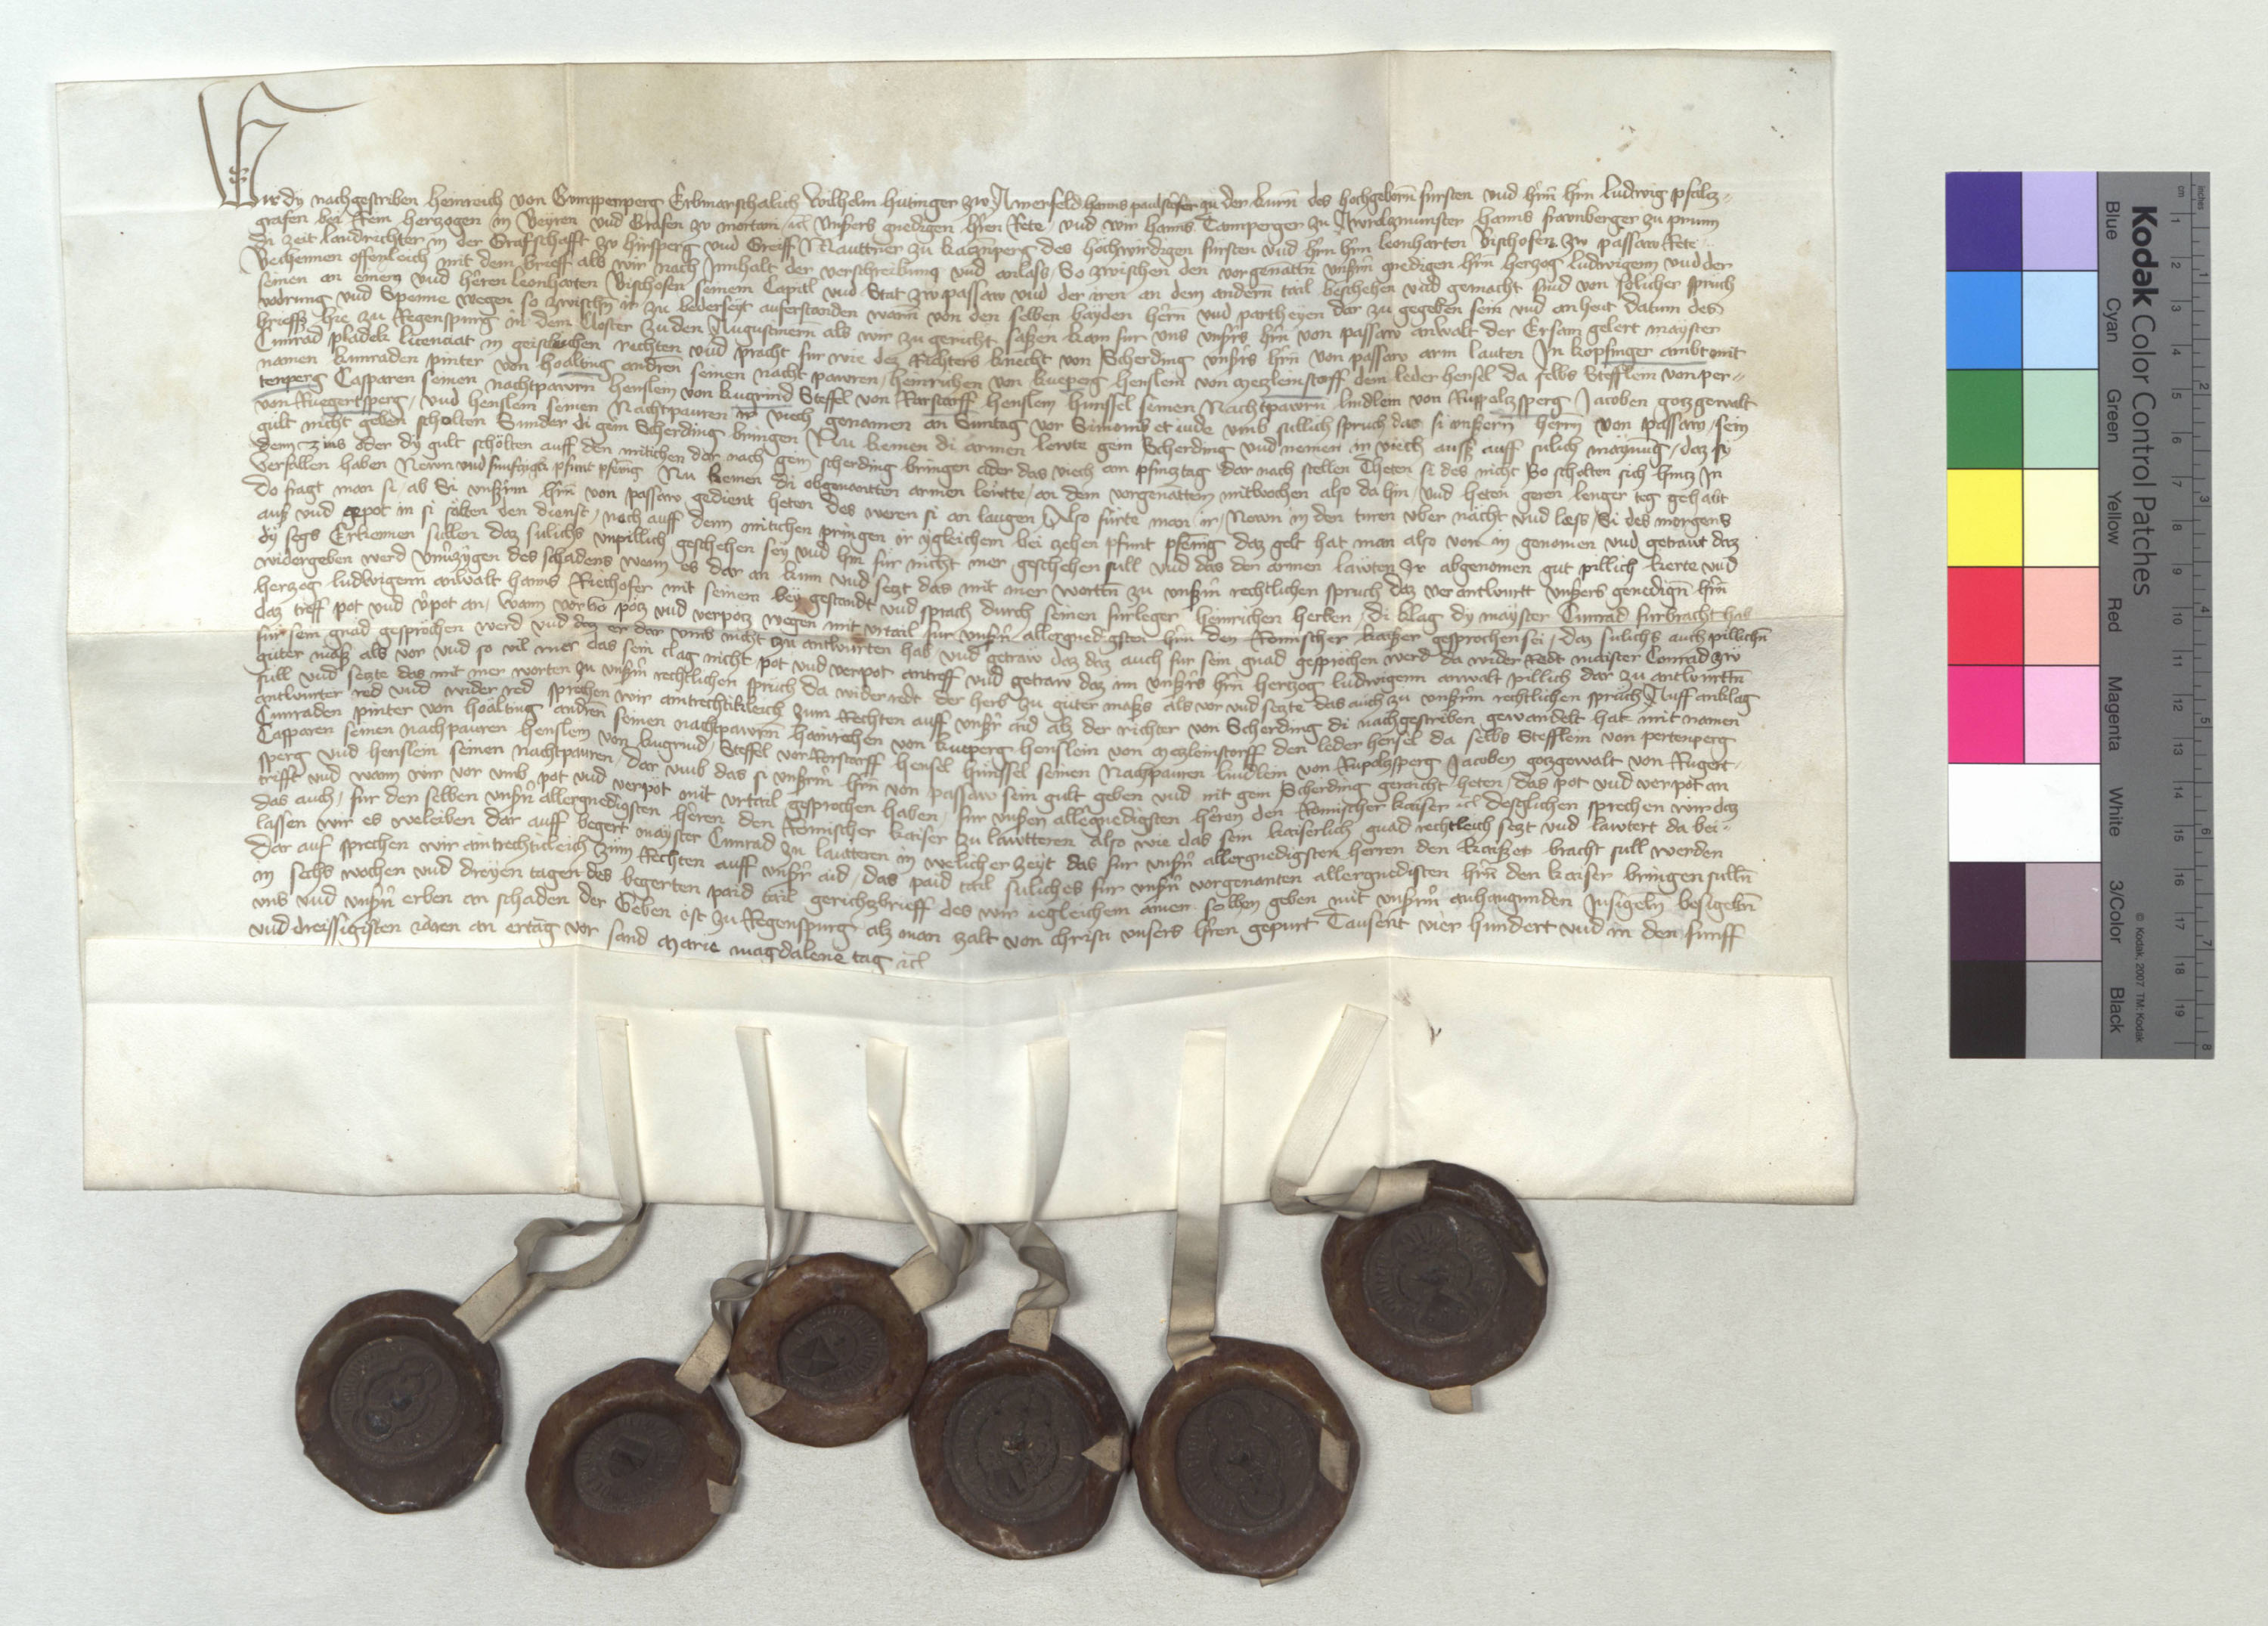 Wir dy nachgeschriben Heinreich von Gumppenperg Erbmarschalich Wilhelm Hutinger zw Imerfeld Hanns paulstorfer zu der kurn des hochgeborn fursten vnd hern hern Ludwig pfalcz-
grafen bei Rein herzogen in Beyren vnd Grafen zv mortani etc vnsers gnedigen hern Rete vnd wir hanns Camperger zu hanns frawnberger zu prunn
zu zeit landrichter in der Grafschafft zv hirsperg vnd Greiff Mauttner zu kaczenperg des hochwirdigen fursten vnd hern hern leonharten Bischofen zw passaw Rete
Bechennen offenleich mit dem brieff als wir nach Innhalt der verschreibung vnd anlass So zwischen den vorgenantn vnserm gnedigen hern herzog Ludwigenn vnd der
seinen an einem vnd herren leonharten Bischofen seinem Capitl vnd Stat zw passaw vnd der iren an dem andern tail beschehen vnd gemacht sind von solicher spruch
vodrung vnd Spenne wegen so zwischn in zu bederseyt auferstanden warn von den selben bayden hern vnd partheyen dar zu gegeben sein vnd an heut datum des
brieffs hie zu Regenspurg in dem Closter zu den Augustinern als wir zu gericht sassen kam fur vns vnsers hern von passaw anwalt der Ersam gelert mayster
Cunrad pladek licenciat in geistlichen rechten vnd pracht fur wie des Richters knecht von Scherding vnsers hern von passaw arm lauten In kopfinger ambt mit
namen kunraden pinter von hoalting andren seinen nacht pawren heinrichen von kueperg henslein von meczleinstorff dem leder hensel da selbs Stefflein von per-
tenperg Casparen seinen nachtpawrn henslein von kugrind Steffel von Rorstorff henslein hunssel seinen Nachtpawrn lindlein von Ruppolczsperg Jacoben gotzgewalt
von Ruegertsperg vnd henslein seinen Nachtpauren ir viech genomen an Suntag vor Simonis et iude vmb sullich spruch das si vnserm herrn von passaw sein
gult nicht geben scholten Sunder di gein Scherding bringen Nu kemen di armen lewte gein Scherding vnd nemen in viech auss auff sulich maynung daz sy
dem zins oder dy gult scholten auff den mitichen dar nach gein scherding bringen oder das viech am pfincztag dar nach stellen Theten si des nicht So scholten sich hincz In
verfallen haben Newn vnd funffczigk pfunt pfenig Nu kemen di obgenantten armen lewtte an dem vorgenattem mitwochen also da hin vnd heten geren lenger teg gehabt
do fragt man si ab Si vnserm hern von passaw gedient heten des weren si an laugen Also furte man ir Newn in den turen vber nacht vnd liess Si des morgens
auss vnd erpot in si solten den dienst noch auff denn mitichen pringen ir ygleichem bei zehen pfunt pfening daz gelt hat man also von in genomen vnd getrawt daz
dy segs Erkennen sullen daz sulichs vnpillich geschehen sey vnd hin fur nicht mer geschehen sull vnd das den armen lawten Ir abgenomen gut pillich kerte vnd
widergeben werd des schadens wenn es dar an kum vnd seczt das mit mer wortten zu vnserm rechtlichen spruch daz verantwurtt vnsers genedign hern
herzog Ludwigenn anwalt hanns Riethofer mit seinem bey gestandt vnd sprach durch seinen furleger heinrichen herken di klag dy mayster Cunrad furbracht hab
daz treff pot vnd vpot an wann vor vmb potz vnd verpotz wegen mit vrtail fur vnsern allergnedigsten hern den Romischer kaiser gesprochen sei daz sulichs auch pillichn
fur sein gnad gesprochen werd vnd daz er dar vmb nicht zu antwurten hab vnd getraw daz daz auch fur sein gnad gesprochen werd da wider redt maister Conrad zw
guter mass als vor vnd so vil mer das sein clag nicht pot vnd verpot antreff vnd getraw daz im vnsers hern herczog Ludwigenn anwalt pillich dar zu antwurttn
sull vnd seczte das mit mer worten zu vnserm rechtlichen spruch da wider redt der herk zu guter mass als vor vnd seczte das auch zu vnserm rechtlichen spruch Auff anklag
antwurter red vnd wider red sprechen wir aintrechtikleich zum Rechten auff vnser aid als der richter von Scherding di nachgeschriben gewandelt hat mit namen
Cunraden pinter von hoalting andren seinen nachtpawrn hainrichen von kueperg henslein von meczleinstorff den leder hensel da selbs Stefflein von pertenperg
Casparen seinen nachpauren henslein von kugrind Steffel von Rorstarff hensel hunssel seinen Nachpauren lindlein von Rupolczsperg Jacoben goczgewalt von Rugert-
sperg vnd henslein seinen nachtpauren dar vmb das si vnserm hern von passaw sein gult geben vnd nit gein Scherding geraicht heten das pot vnd verpot an
trifft vnd wann wir vor vmb pot vnd verpot mit vrtail gesprochen haben fur vnsen allergnedigsten heren den Romischer kaiser etc desglichen sprechen wir daz
das auch fur den selben vnsern allergnedigsten heren den Romischer kaiser zu lawtteren also wie das sein kaiserlich gnad rechtleich seczt vnd lawtert da bei-
lassen wir es weleiben dar auff begert mayster Cunrad zu lautteren in welicher zeyt das fur vnsern allergnedigsten herren den kaiser bracht sull werden
Dar auf sprechen wir aintrechticleich zum Rechten auff vnser aid das paid tail suliches fur vnsern vorgenanten allergnedisten hern den kaiser bringen sulln
in sechs wochen vnd dreyen tagen des begerten paid tail gerichczbrieff des wir iegleichem ainen solhen geben mit vnserm anhangunden Insigeln besigelten
vns vnd vnsern erben an schaden der Geben ist zu Regenspurg als man zalt von christi vnsers heren gepurt Tausent vier hundert vnd in den funff
vnd dreissigisten iaren an ertag vor sand Marie magdalene tag etc
Kodak Color Control Patches
Blue Cyan Green Yellow Red Magenta White 3/Color Black
© Kodak, 2007 TM: Kodak
cm 1 2 3 4 5 6 7 8 9 10 11 12 13 14 15 16 17 18 19
inches 1 2 3 4 5 6 7 8